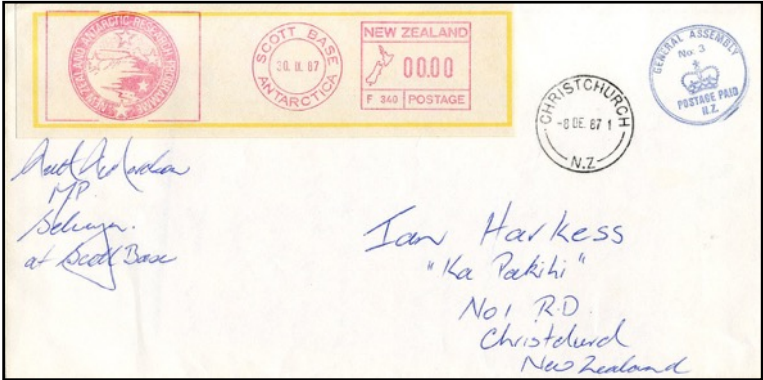 NEW ZEALAND ANTARCTIC RESEARCH PROGRAMME
SCOTT BASE
ANTARCTICA
NEW ZEALAND
00.00
F 340 POSTAGE
CHRISTCHURCH
-8 DE. 87 1
N.Z
GENERAL ASSEMBLY
No. 3
POSTAGE PAID
N.Z.
MP.
Selwyn.
at Scott Base
Ian Harkess
"Ka Pakihi"
No 1 R.D.
Christchurch
New Zealand